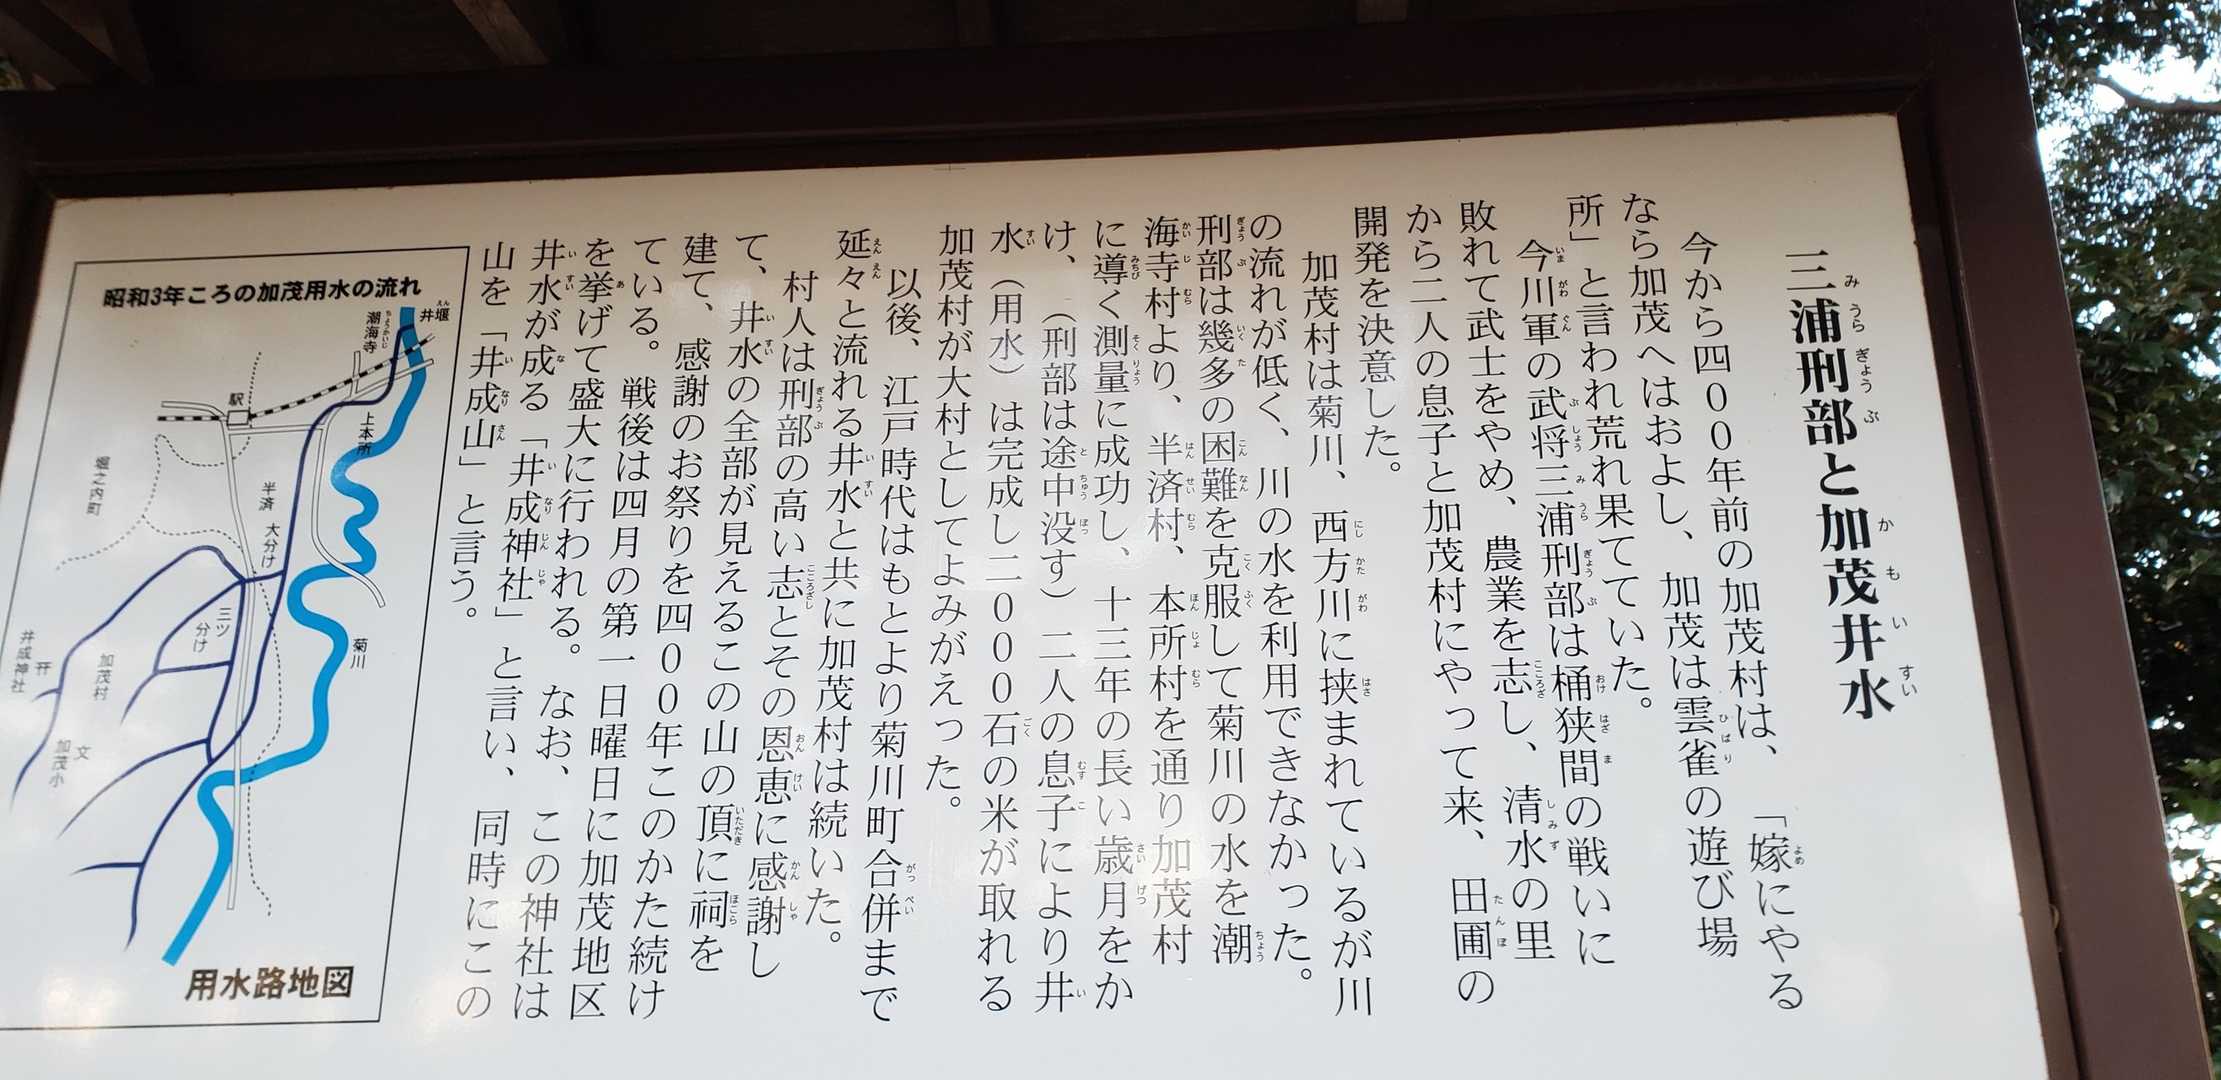 三浦刑部と加茂井水
みうらぎょうぶ かもいすい
今から四00年前の加茂村は、「嫁にやる
なら加茂へはおよし、加茂は雲雀の遊び場
所」と言われ荒れ果てていた。
今川軍の武将三浦刑部は桶狭間の戦いに
敗れて武士をやめ、農業を志し、清水の里
から二人の息子と加茂村にやって来、田圃の
開発を決意した。
加茂村は菊川、西方川に挟まれているが川
の流れが低く、川の水を利用できなかった。
刑部は幾多の困難を克服して菊川の水を潮
海寺村より、半済村、本所村を通り加茂村
に導く測量に成功し、十三年の長い歳月をか
け、（刑部は途中没す）二人の息子により井
水（用水）は完成し二000石の米が取れる
加茂村が大村としてよみがえった。
以後、江戸時代はもとより菊川町合併まで
延々と流れる井水と共に加茂村は続いた。
村人は刑部の高い志とその恩恵に感謝し
て、井水の全部が見えるこの山の頂に祠を
建て、感謝のお祭りを四00年このかた続け
ている。戦後は四月の第一日曜日に加茂地区
を挙げて盛大に行われる。なお、この神社は
井水が成る「井成神社」と言い、同時にこの
山を「井成山」と言う。
昭和3年ころの加茂用水の流れ
井堰
えん
潮海寺
ちょうかいじ
駅
上本所
堀之内町
半済
大分け
三ツ分け
菊川
加茂村
井成神社
文
加茂小
用水路地図